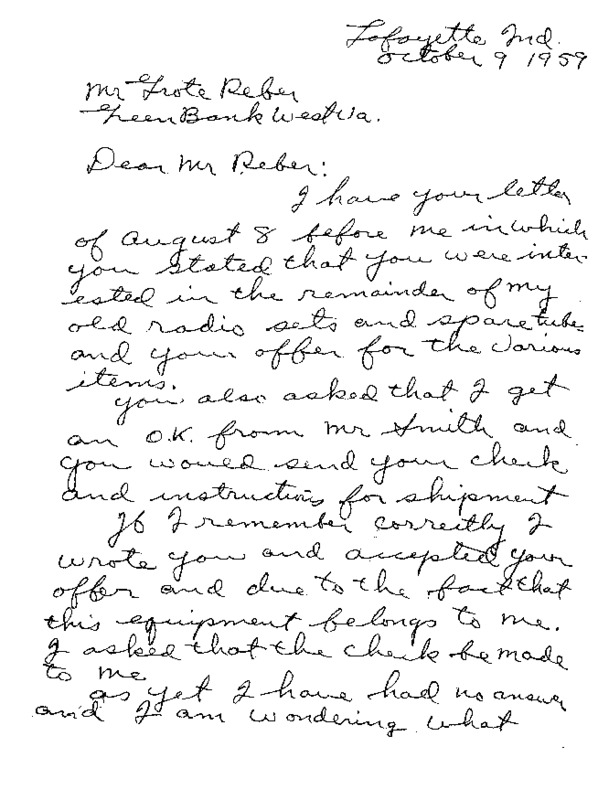 Lafayette Ind.
October 9 1959
Mr Grote Reber
Green Bank West Va.
Dear Mr Reber:
I have your letter
of August 8 before me in which
you stated that you were inter-
ested in the remainder of my
old radio sets and spare tubes
and your offer for the various
items.
You also asked that I get
an O.K. from Mr Smith and
you would send your check
and instructions for shipment
If I remember correctly I
wrote you and accepted your
offer and due to the fact that
this equipment belongs to me.
I asked that the check be made
to me
As yet I have had no answer
and I am wondering what